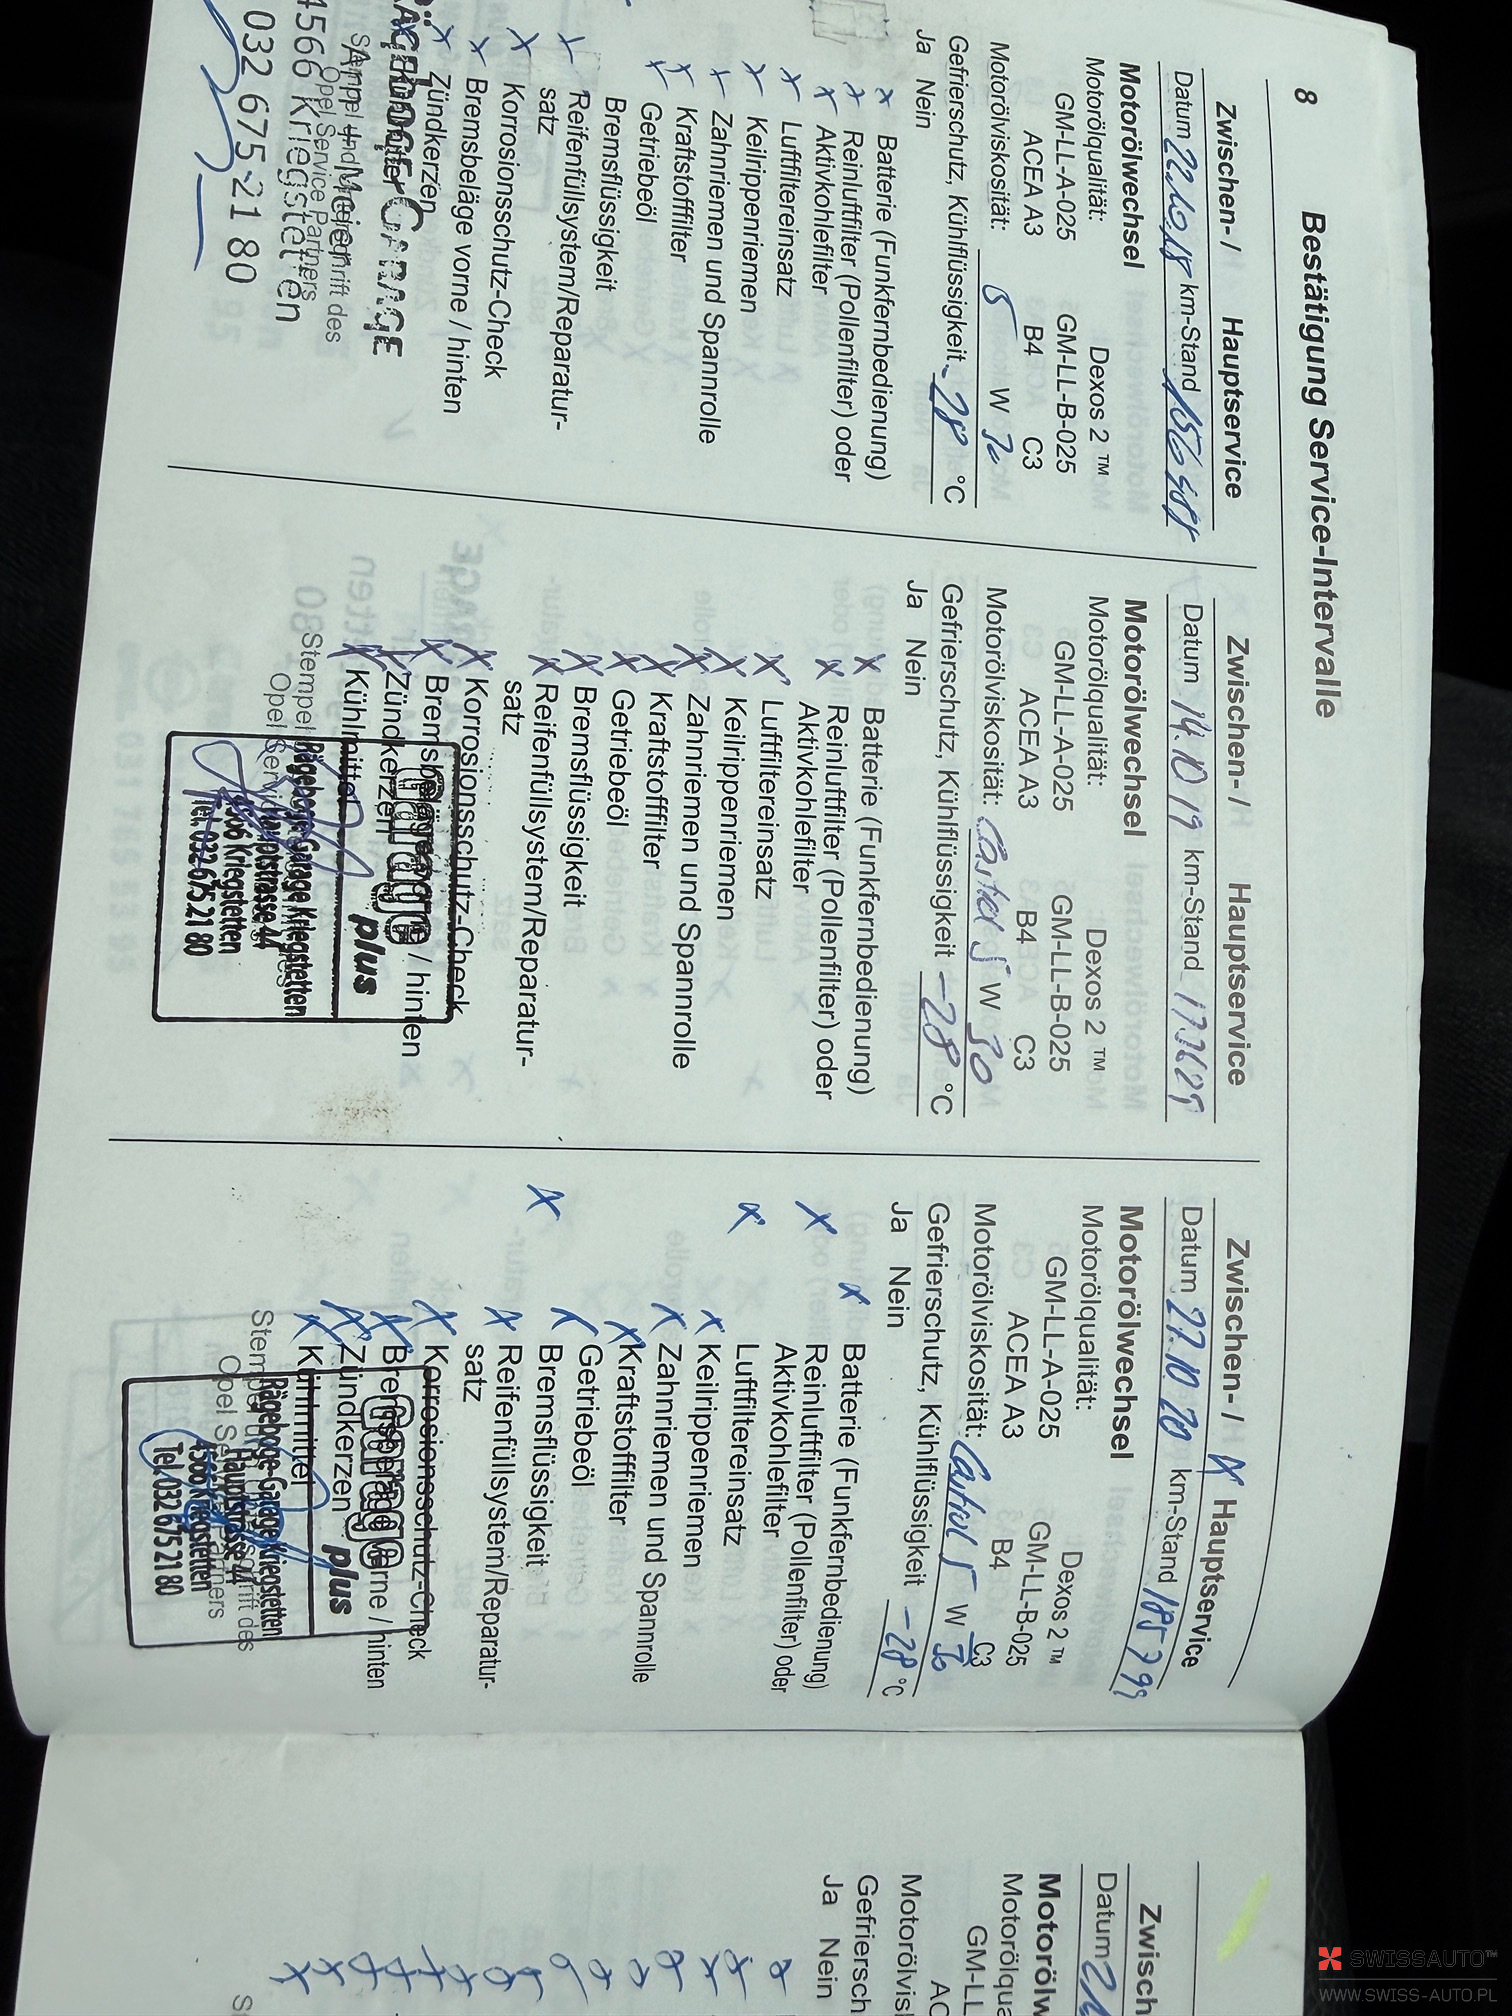 8
Bestätigung Service-Intervalle
Zwischen- / Hauptservice
Datum 22.10.18 km-Stand 156
Motorölwechsel
Motorölqualität: Dexos 2 ™
GM-LL-A-025 GM-LL-B-025
ACEA A3 B4 C3
Motorölviskosität: 5 W 30
Gefrierschutz, Kühlflüssigkeit -28 °C
Ja Nein
x Batterie (Funkfernbedienung)
x Reinluftfilter (Pollenfilter) oder
x Aktivkohlefilter
x Luftfiltereinsatz
x Keilrippenriemen
x Zahnriemen und Spannrolle
x Kraftstofffilter
x Getriebeöl
Bremsflüssigkeit
x Reifenfüllsystem/Reparatur-
satz
x Korrosionsschutz-Check
x Bremsbeläge vorne / hinten
x Zündkerzen
Opel Service Partners
4566 Kriegstetten
032 675 21 80
Zwischen- / Hauptservice
Datum 14.10 19 km-Stand 173629
Motorölwechsel
Motorölqualität: Dexos 2 ™
GM-LL-A-025 GM-LL-B-025
ACEA A3 B4 C3
Motorölviskosität: 5 W 30
Gefrierschutz, Kühlflüssigkeit -28 °C
Ja Nein
x Batterie (Funkfernbedienung)
x Reinluftfilter (Pollenfilter) oder
Aktivkohlefilter
x Luftfiltereinsatz
x Keilrippenriemen
x Zahnriemen und Spannrolle
x Kraftstofffilter
x Getriebeöl
x Bremsflüssigkeit
x Reifenfüllsystem/Reparatur-
satz
x Korrosionsschutz-Check
x Bremsbeläge vorne / hinten
x Zündkerzen
x Kühlmittel
Garage plus
Rägeboge-Garage Kriegstetten
Hauptstrasse 44
4566 Kriegstetten
Tel. 032 675 21 80
Zwischen- / x Hauptservice
Datum 27.10 20 km-Stand 185799
Motorölwechsel
Motorölqualität: Dexos 2 ™
GM-LL-A-025 GM-LL-B-025
ACEA A3 B4 C3
Motorölviskosität: Castrol 5 W 30
Gefrierschutz, Kühlflüssigkeit -28 °C
Ja Nein
x Batterie (Funkfernbedienung)
x Reinluftfilter (Pollenfilter) oder
Aktivkohlefilter
x Luftfiltereinsatz
x Keilrippenriemen
x Zahnriemen und Spannrolle
x Kraftstofffilter
Getriebeöl
x Bremsflüssigkeit
x Reifenfüllsystem/Reparatur-
satz
x Korrosionsschutz-Check
x Bremsbeläge vorne / hinten
x Zündkerzen
x Kühlmittel
Garage plus
Rägeboge-Garage Kriegstetten
Hauptstrasse 44
4566 Kriegstetten
Tel. 032 675 21 80
Zwisch
Datum
Motorölw
Motorölqua
GM-LL
AC
Motorölvis
Gefriersch
Ja Nein
SWISSAUTO™
WWW.SWISS-AUTO.PL